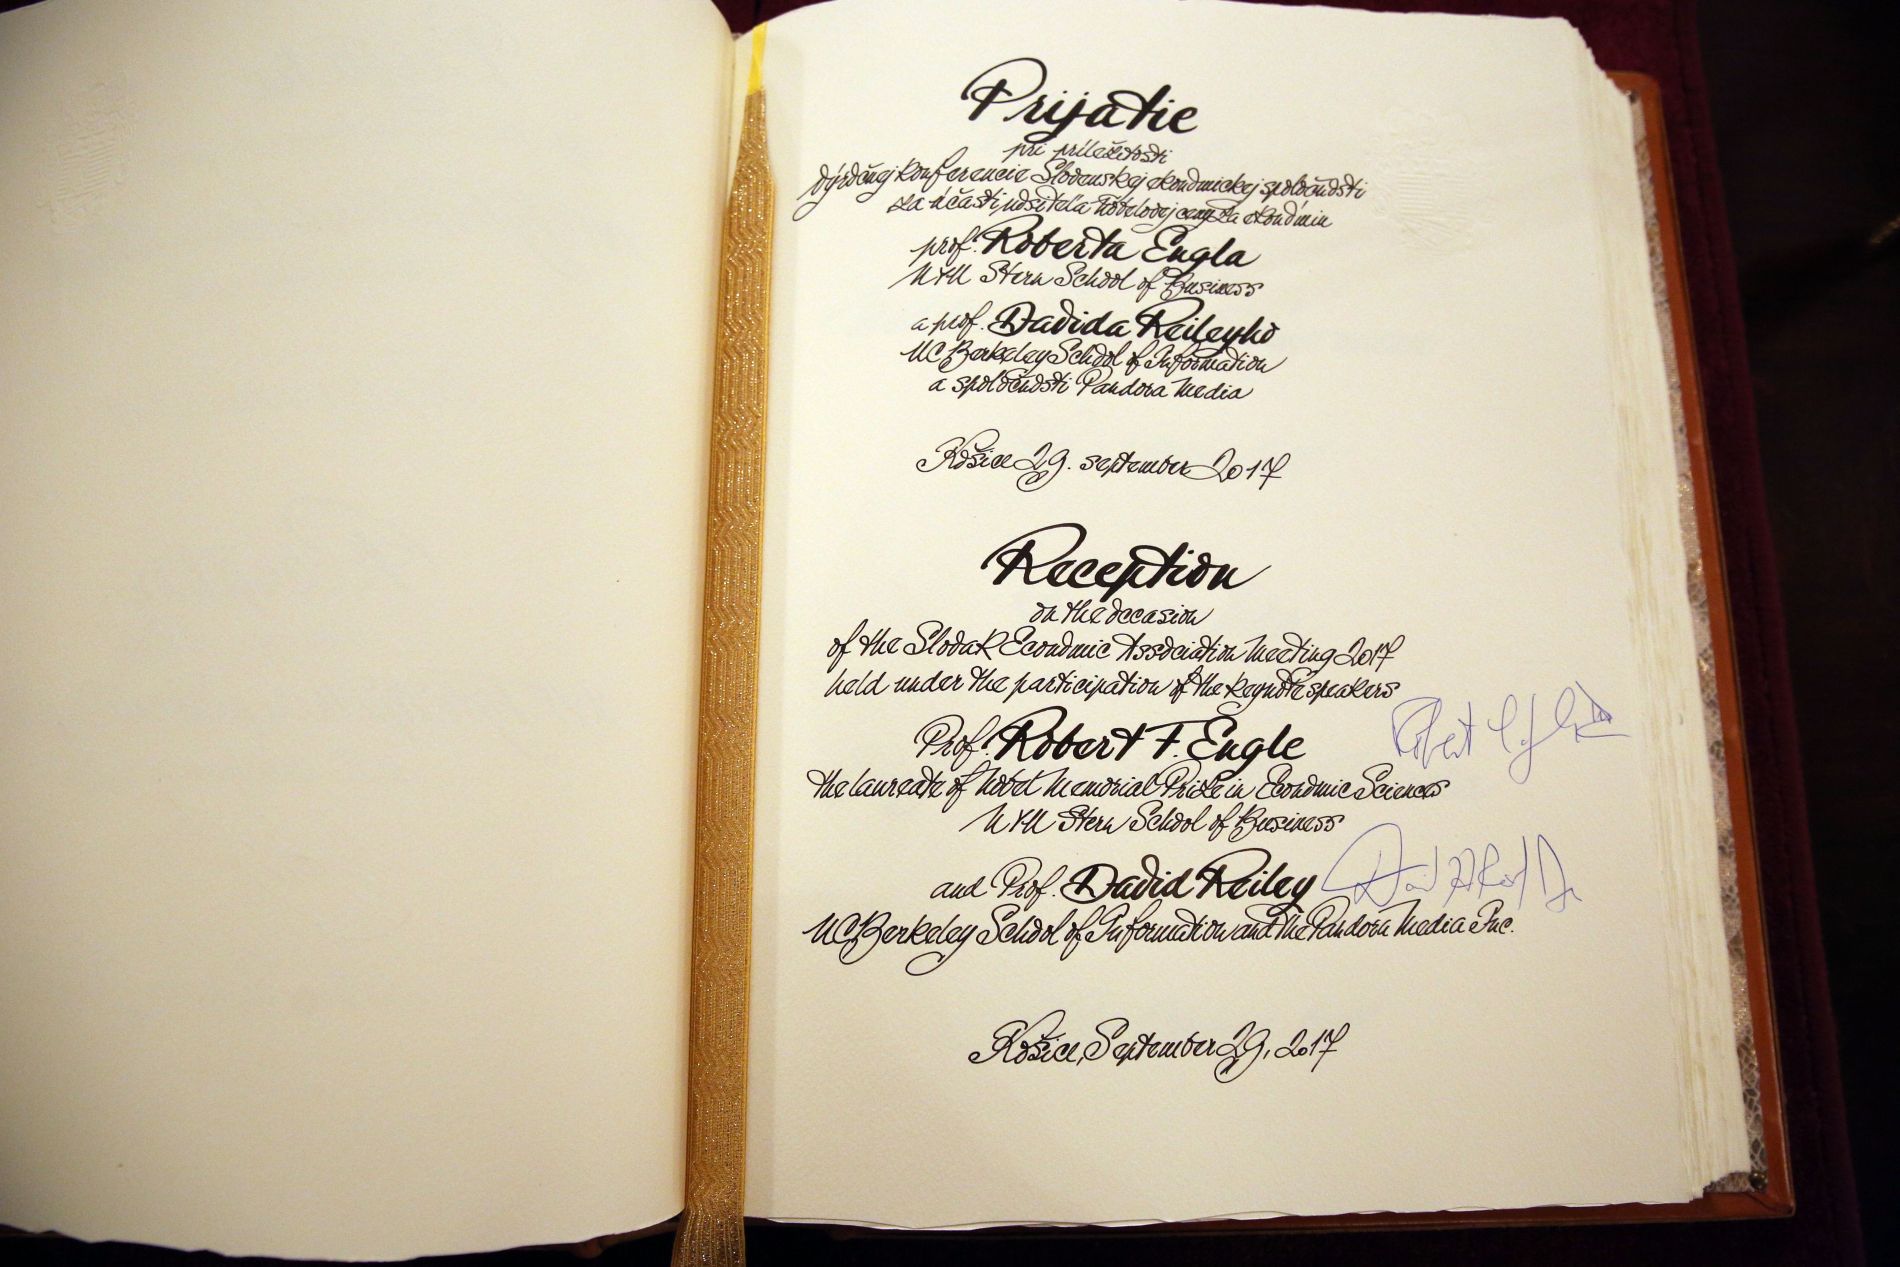 Prijatie
pri príležitosti
výročnej konferencie Slovenskej ekonomickej spoločnosti
za účasti nositeľa Nobelovej ceny za ekonómiu
prof. Roberta Engla
NYU Stern School of Business
a prof. Davida Reileyho
UC Berkeley School of Information
a spoločnosti Pandora Media
Košice 29. september 2017
Reception
on the occasion
of the Slovak Economic Association Meeting 2017
held under the participation of the keynote speakers
Prof. Robert F. Engle
the laureate of Nobel Memorial Prize in Economic Sciences
NYU Stern School of Business
and Prof. David Reiley
UC Berkeley School of Information and the Pandora Media Inc.
Košice, September 29, 2017